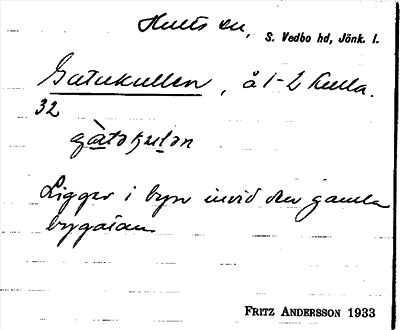 Hults sn, S. Vedbo hd, Jönk. l.
Gatukullen, å 1-2 Kulla.
32
gàtəkulən
Ligger i byn invid den gamla
bygatan
FRITZ ANDERSSON 1933